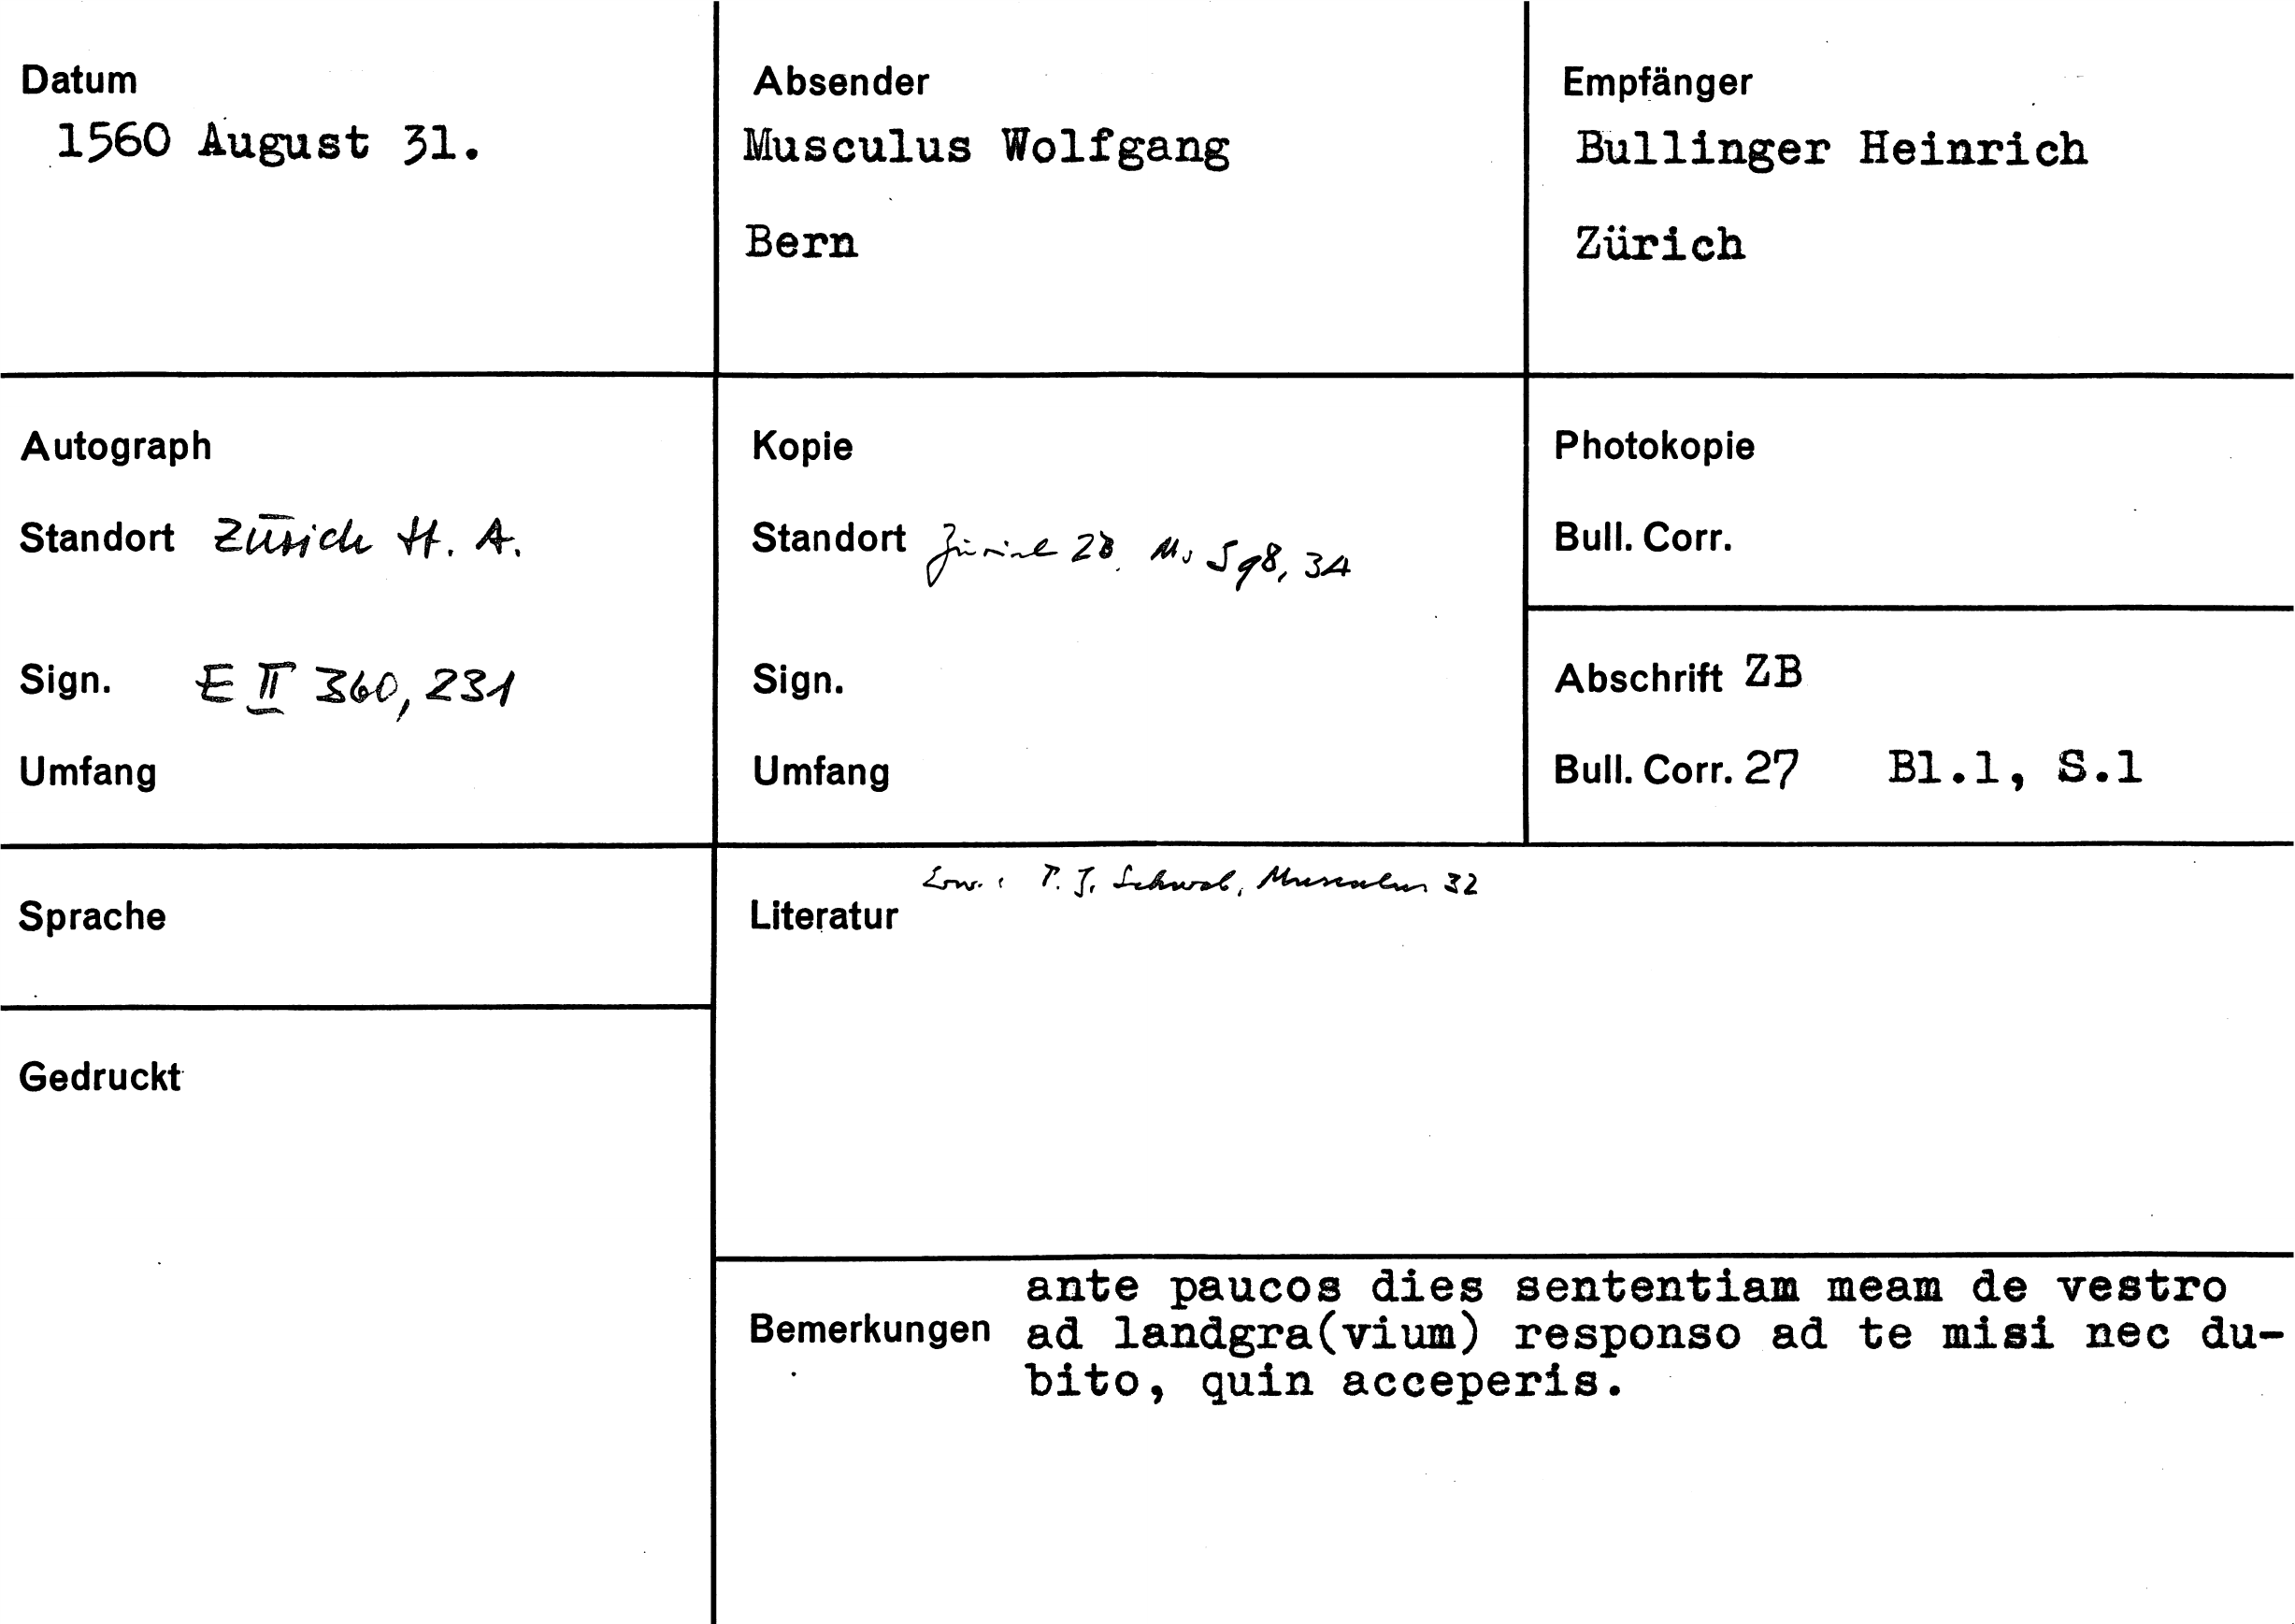 Datum
1560 August 31.
Absender
Musculus Wolfgang
Bern
Empfänger
Bullinger Heinrich
Zürich
Autograph
Standort Zürich St. A.
Sign. E II 360, 231
Umfang
Kopie
Standort Zürich ZB. Ms S 98, 34
Sign.
Umfang
Photokopie
Bull. Corr.
Abschrift ZB
Bull. Corr. 27 Bl.1, S.1
Sprache
Gedruckt
Literatur
Erw.: P. J. Schwab, Musculus 32
Bemerkungen
ante paucos dies sententiam meam de vestro
ad landgra(vium) responso ad te misi nec du-
bito, quin acceperis.